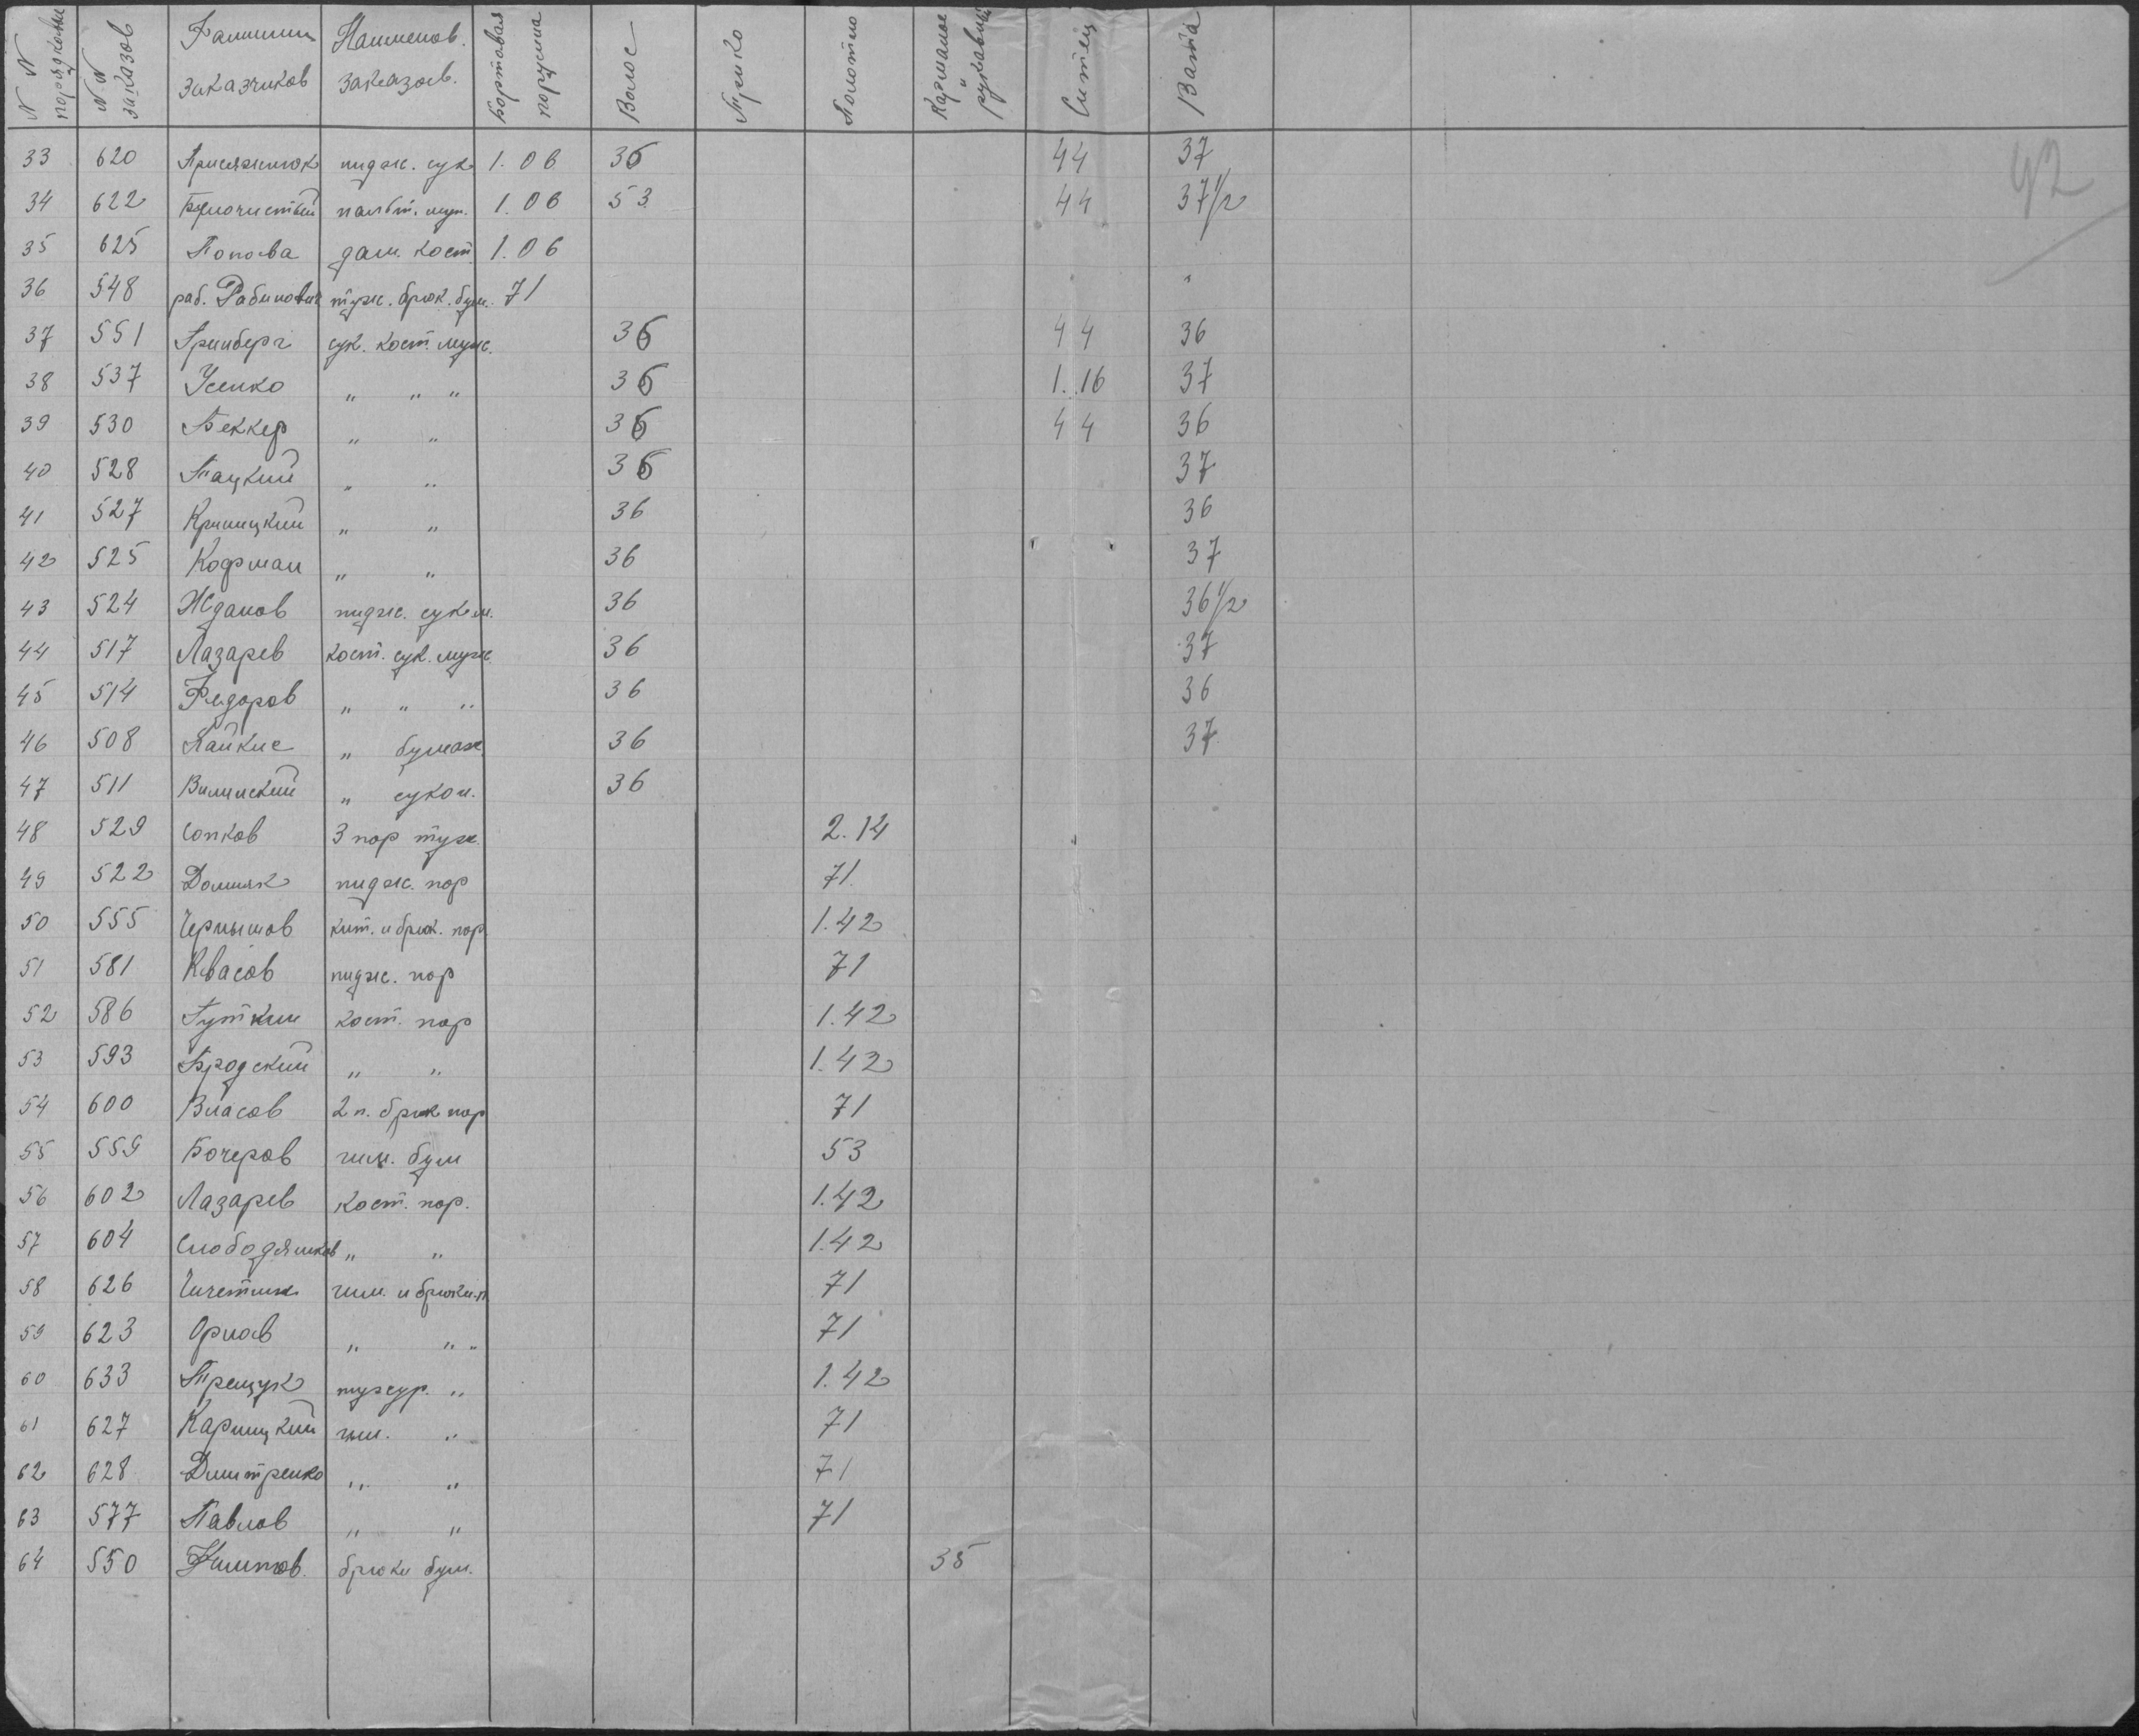 N N порядковый
N N заказов
Фамилии заказчиков
Наименов. заказов.
Бортовая парусина
Волос
Трико
Полотно
Карманое и рукавн.
Ситец
Вата
92
33 620 Присяжнюк пидж. сук 1.06 36 44 37
34 622 пальт. муж. 1.06 53 44 37 1/2
35 625 Попова дам. кост. 1.06
36 548 раб. Рабинович туж. брюк. бум. 71
37 551 Гринберг сук. кост. муж. 36 44 36
38 537 Усенко " " " 36 1.16 37
39 530 Беккер " " 36 44 36
40 528 Тацкий " " 36 37
41 527 Криницкий " " 36 36
42 525 Кофман " " 36 37
43 524 Жданов пидж. сукон. 36 36 1/2
44 517 Лазарев кост. сук. муж. 36 37
45 514 Федоров " " " 36 36
46 508 Пайкис " бумаж 36 37
47 511 Вилинский " сукон. 36
48 529 Сопков 3 пар туж. 2.14
49 522 Домняк пидж. пар 71
50 555 Чернышов кит. и брюк. пар. 1.42
51 581 Квасов пидж. пар 71
52 586 Гуткин кост. пар 1.42
53 593 Бродский " " 1.42
54 600 Власов 2 п. брюк пар 71
55 559 Бочеров гим. бум 53
56 602 Лазарев кост. пар. 1.42
57 604 Слободянников " " 1.42
58 626 гим. и брюки п 71
59 623 Орлов " " " 71
60 633 Трещук тужур. " 1.42
61 627 Карницкий гим. " 71
62 628 Дмитренко " " 71
63 577 Павлов " " 71
64 550 брюки бум. 35